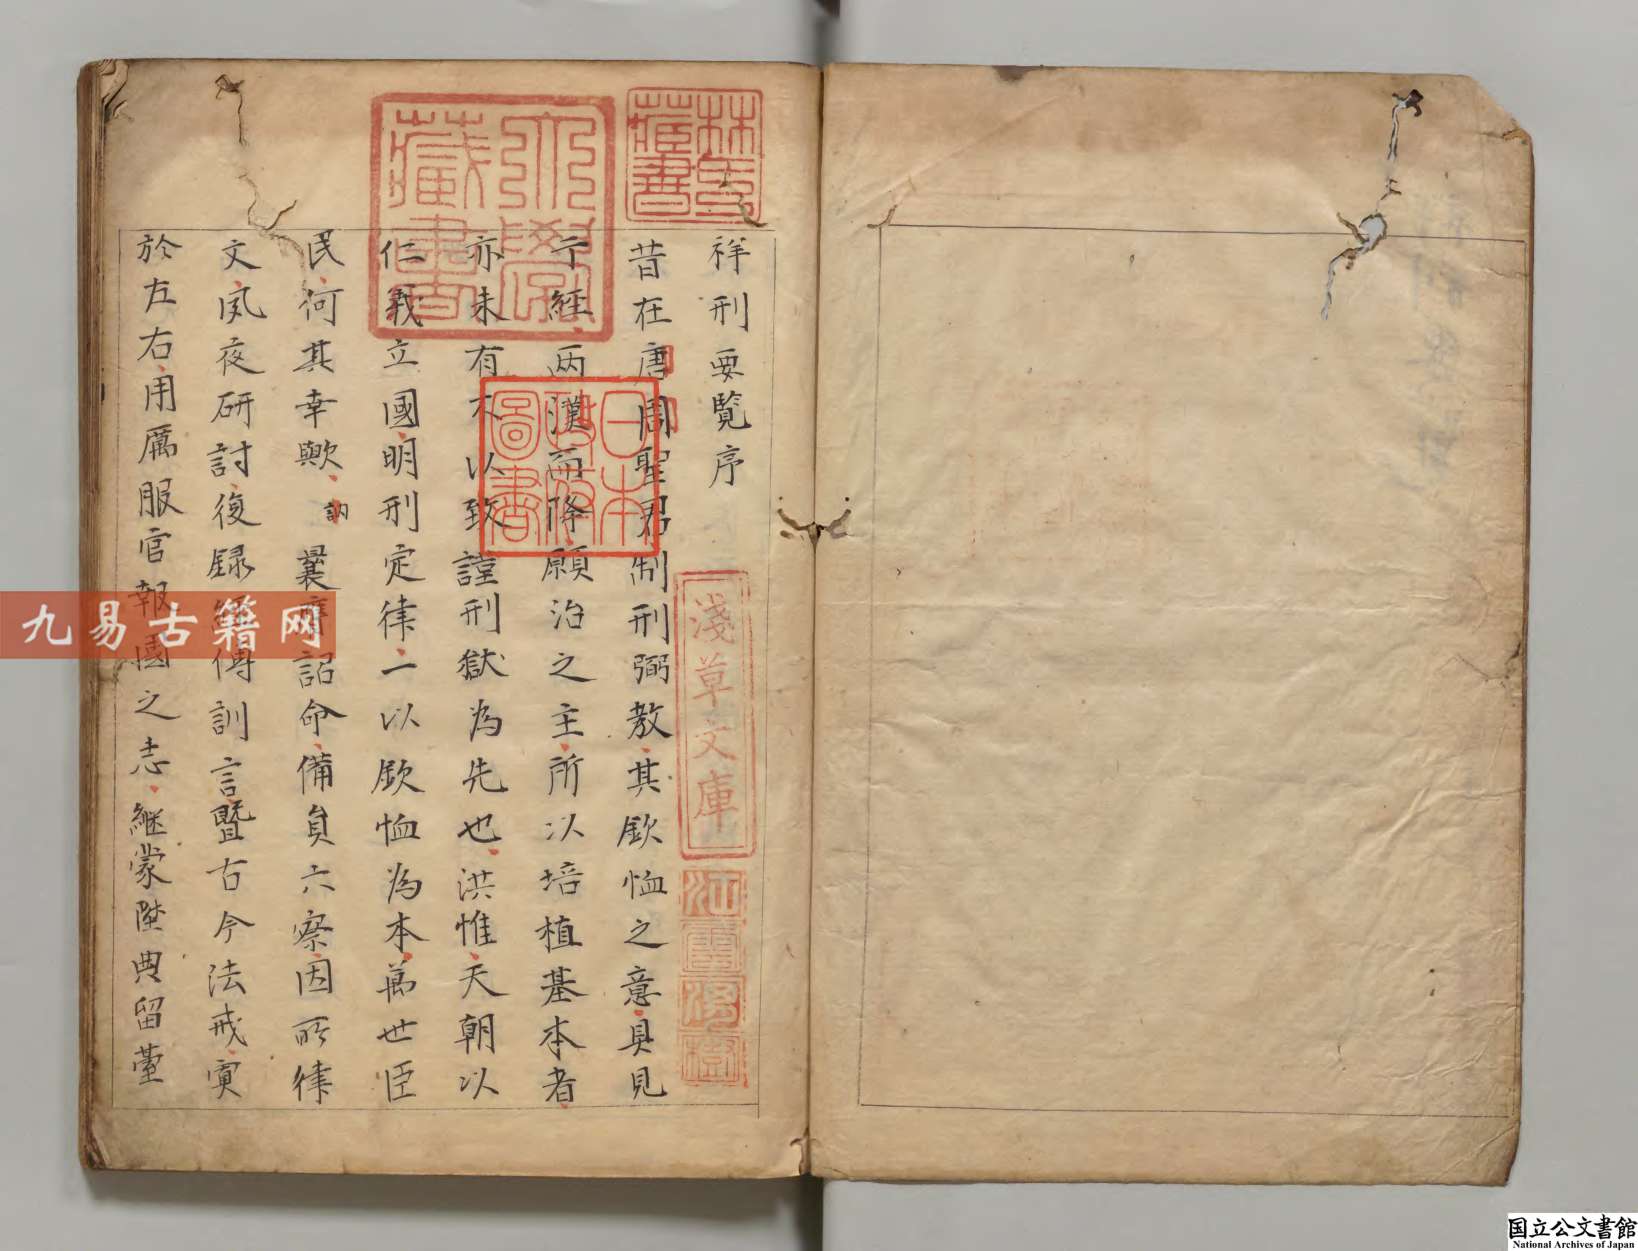 祥刑要覧序
昔在唐周聖君制刑弼教其欽恤之意具見
于經兩漢而降願治之主所以培植基本者
亦未有不以致謹刑獄為先也洪惟天朝以
仁義立國明刑定律一以欽恤為本萬世臣
民何其幸歟訥曩膺詔命備員六察因所律
文夙夜研討復録經傳訓言暨古今法戒寘
於左右用厲服官報國之志継蒙陞典留臺
林氏藏書
大學藏書
日本政府圖書
淺草文庫
江雲渭樹
九易古籍网
国立公文書館
National Archives of Japan